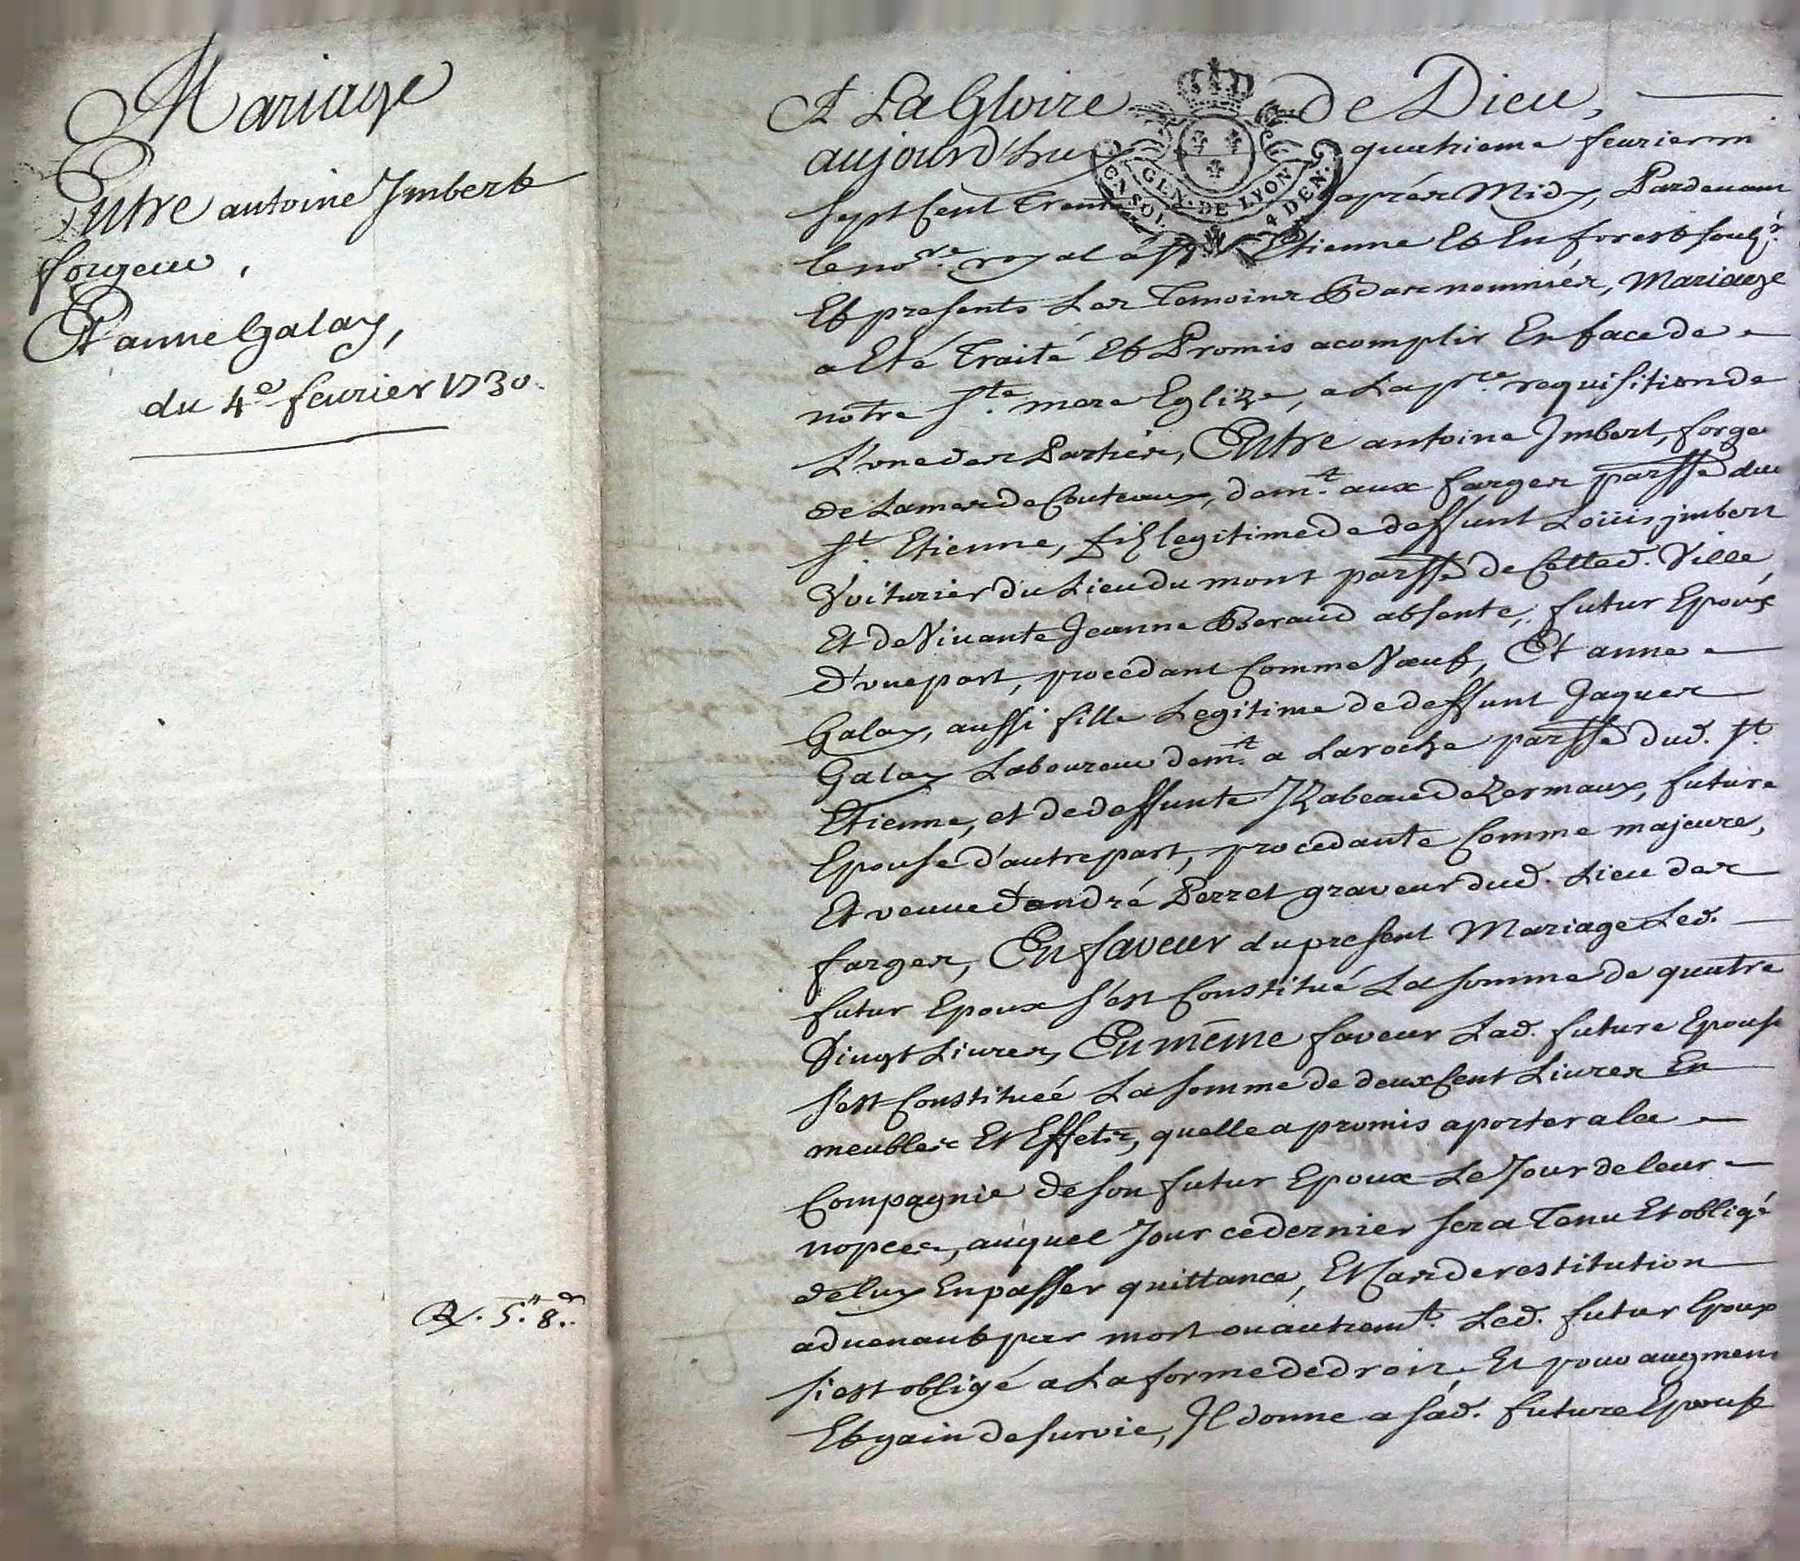 Mariage
Entre antoine Jmbert
forgeur,
Et anne Galay,
du 4e. feurier 1730.
R. 5.# 8.d
A La Gloire de Dieu,
aujourd'huy quatrieme feurier m
sept Cent Trente aprés Midy, Pardeuant
le nore. royal à St. Etienne Et En forest souss.
Et presents Les Temoins Bas nommés, Mariage
a Eté Traité Et Promis acomplir En face de
notre Ste. mere Eglize, a La pre. requisition de
L'une des Parties, Entre antoine Jmbert, forge
de Lames de Couteaux, demt. aux farges parsse du
St. Etienne, fils legitime de deffunt Loüis jmbert
Voiturier du Lieu du mont parsse de Cetted. Ville,
Et de Viuante Jeanne Beraud absente, futur Epoux
d'une part, procedant Comme Vœuf, Et anne
Galay, aussi fille Legitime de deffunt Jaques
Galay Laboureur demt. a Laroche parsse dud. St.
Etienne, et de deffunte JZabeau deZermaux, future
Epouse d'autre part, procedante Comme majeure,
Et veuue d'andré Perret graveur dud. Lieu des
farges, En faveur du present Mariage Led.
futur Epoux s'est Constitué La somme de quatre
Vingt Liures, En même faveur Lad. future Epouse
s'est Constituéé La somme de deux Cent Liures En
meubles Et Effets, quelle a promis aporter a la
Compagnie de son futur Epoux Le Jour de leur
nopces, auquel Jour ce dernier sera Tenu Et obligé
de luy En passer quittance, Et Cas de restitution
aduenant par mort ou autremt. Led. futur Epoux
s'i est obligé a La forme de droit, Et pour augmen
Et gain de survie, Jl donne a sad. future Epouse
GEN. DE LYON
4 DEN.